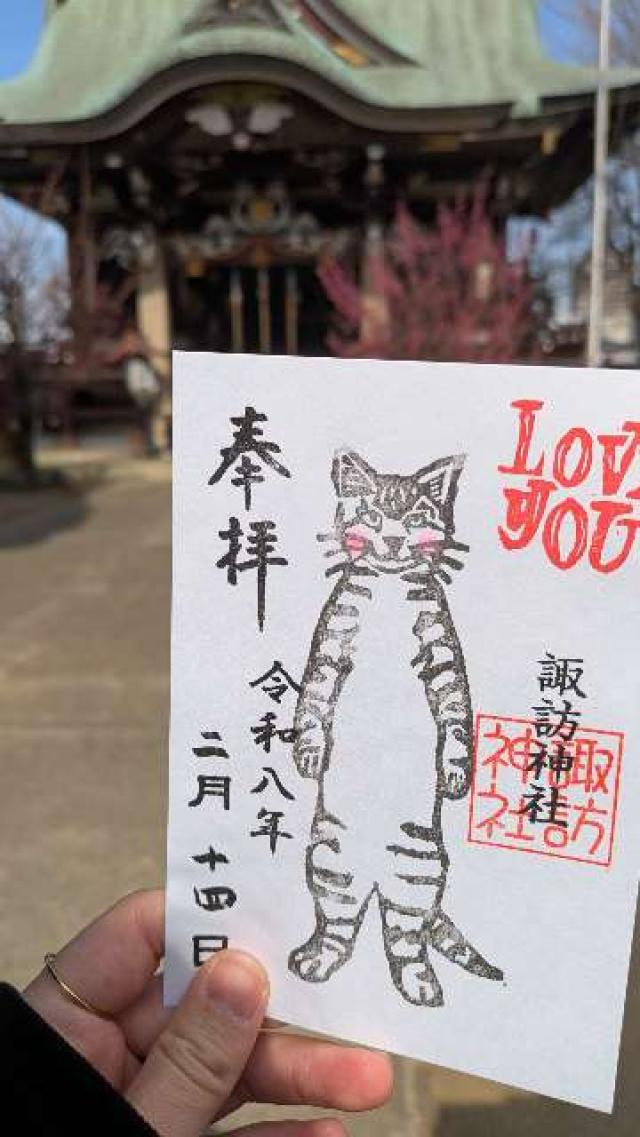 LOVE
YOU
諏訪神社
諏訪
神社
奉拝
令和八年
二月十四日